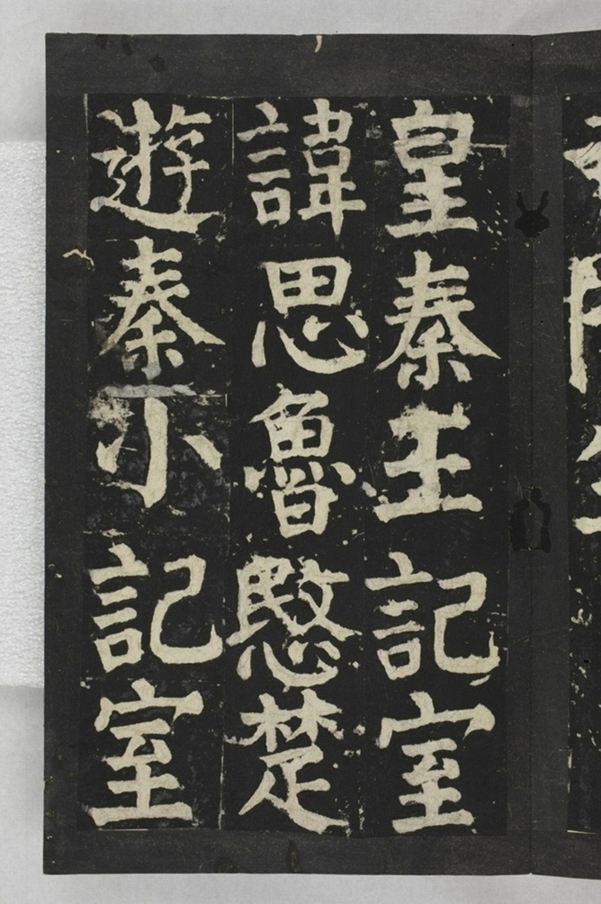 皇秦王記室
諱思魯愍楚
遊秦小記室